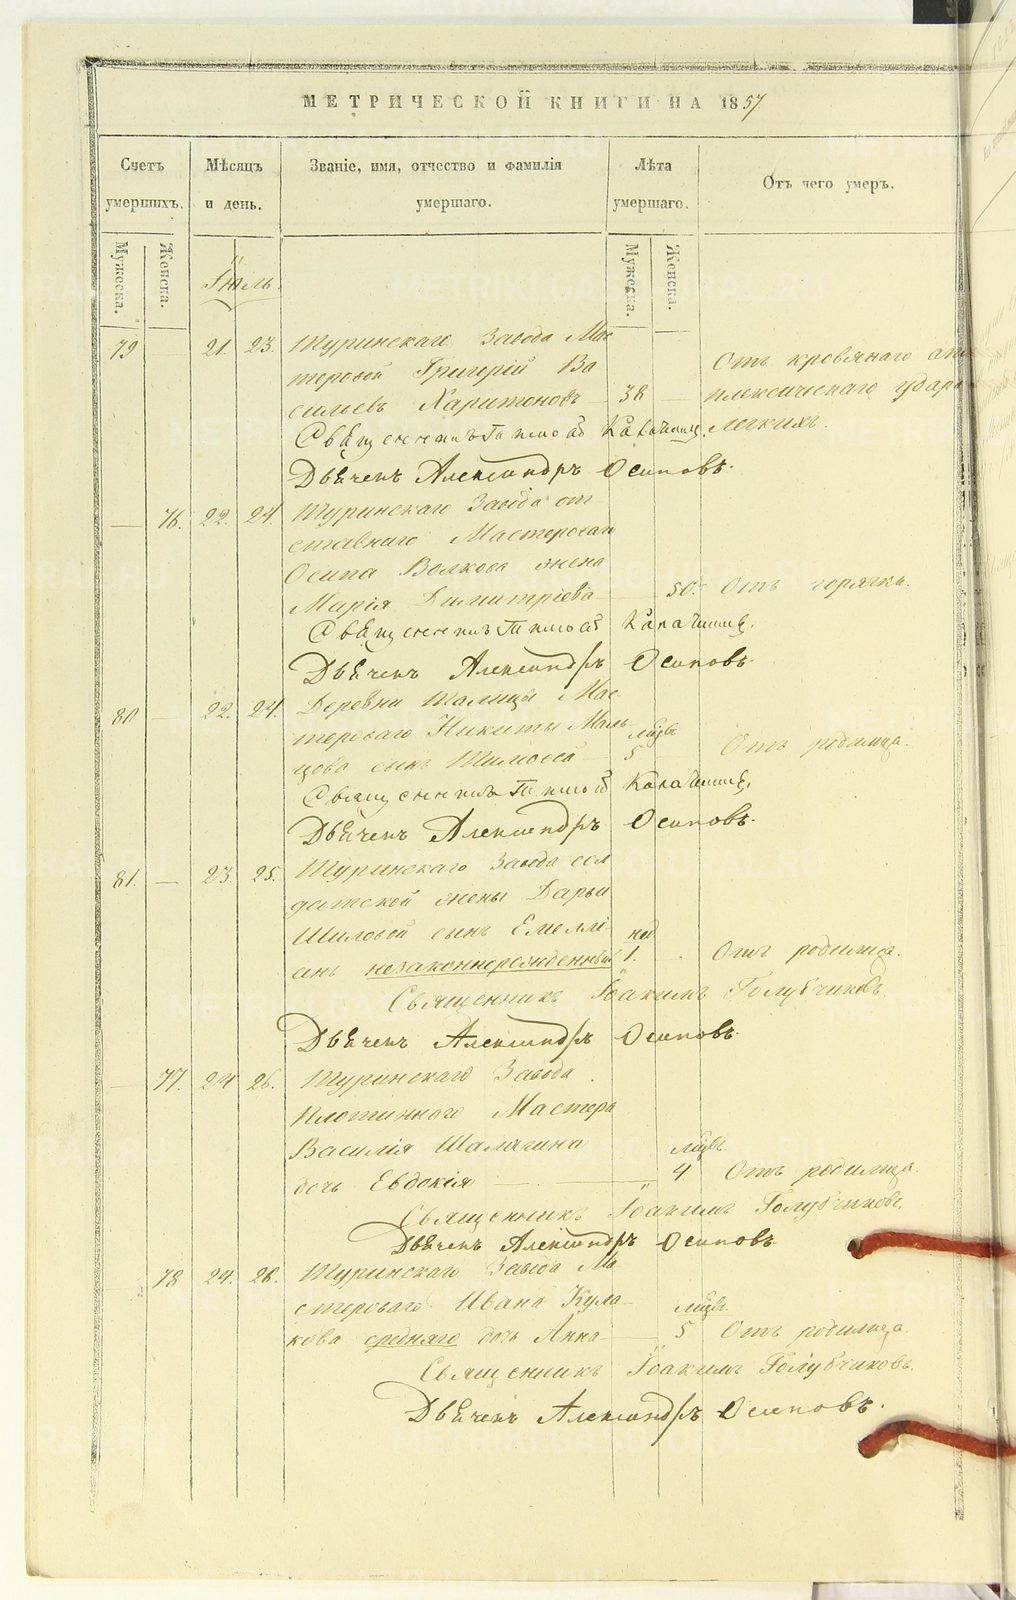 МЕТРИЧЕСКОЙ КНИГИ НА 1857
Счетъ умершихъ. Мѣсяцъ и день. Званіе, имя, отчество и фамилія умершаго. Лѣта умершаго. Отъ чего умеръ.
Мужеска. Женска. Мужеска. Женска.
Іюль.
79 — 21. 23. Туринскаго Завода Мас
теровой Григорій Ва
сильевъ Харитоновъ 38 — Отъ кровянаго
плексическаго удара
легкихъ.
Священникъ
Дьячекъ Александръ Осиповъ.
— 76. 22. 24. Туринскаго Завода от
ставнаго Мастероваго
Осипа Волкова жена
Марія Димитріева — 50. Отъ горячки.
Священникъ
Дьячекъ Александръ Осиповъ.
80 — 22. 24. Деревни Талицы Мас
тероваго Никиты Маль
цова сынъ Тимофей мѣсяц. 5 Отъ родимца.
Священникъ
Дьячекъ Александръ Осиповъ.
81. — 23. 25. Туринскаго Завода сол
датской жены Дарьи
Шиловой сынъ Емелли
анъ незаконнорожденный нед 1. Отъ родимца.
Священникъ Іоакимъ Голубчиковъ.
Дьячекъ Александръ Осиповъ.
— 77. 24 26. Туринскаго Завода
Плотиннаго Мастера
Василія Шалагина
дочь Евдокія — мѣсяц. 4 Отъ родимца.
Священникъ Іоакимъ Голубчиковъ.
Дьячекъ Александръ Осиповъ
78 24. 26. Туринскаго Завода Ма
стероваго Ивана Кула
кова средняго дочь Анна — мѣсяц. 5 Отъ родимца
Священникъ Іоакимъ Голубчиковъ.
Дьячекъ Александръ Осиповъ.